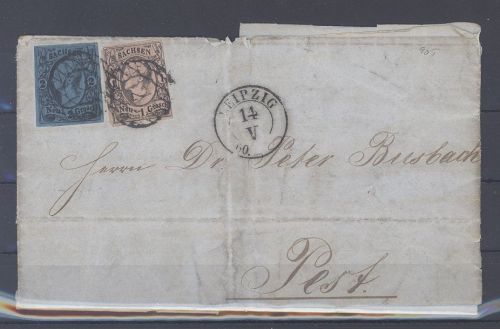 SACHSEN
2 2
Neu 2 Grosch
SACHSEN
Neu 1 Grosch
LEIPZIG
14
V
60.
905
Herrn Dr. Peter Busbach
Pest.